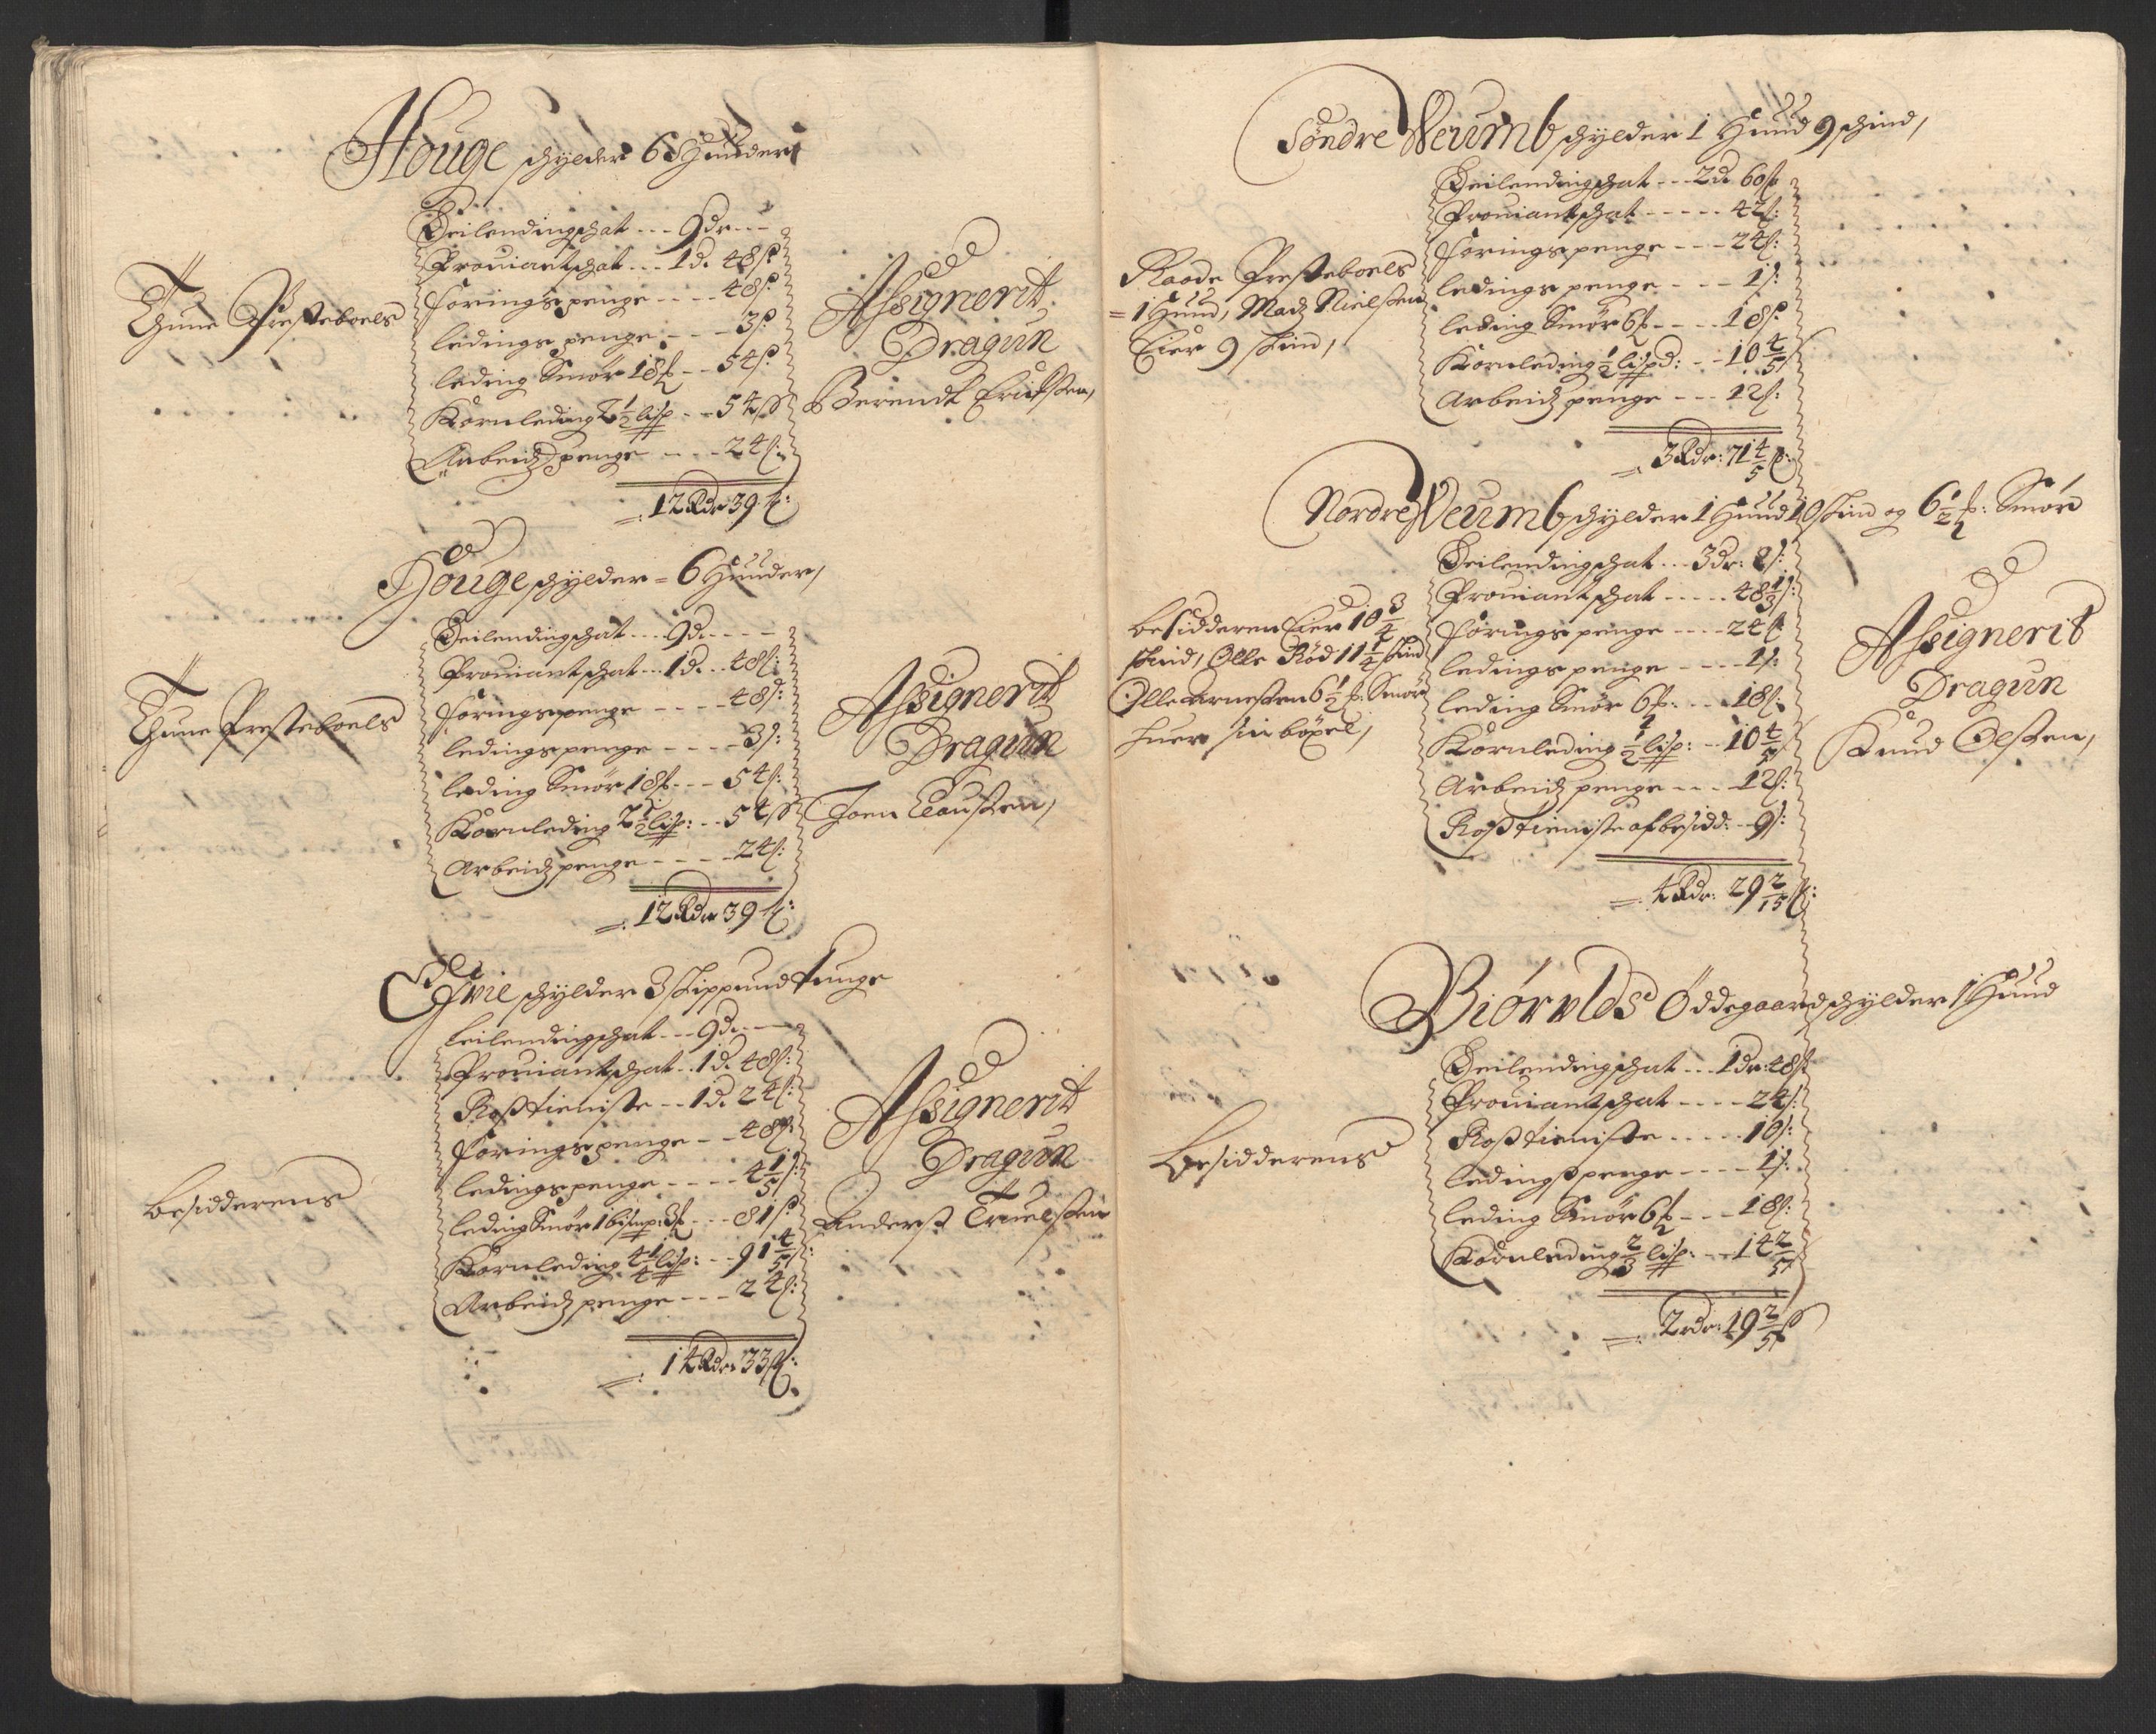 Houge schylder 6 Hunder
Thune Presteboels
Leilendingschat --- 9 dr ---
Prouiantschat --- 1 d. 48 s:
Foringspenge ---- 48 s:
ledingspenge --- 3 s:
leding Smør 18 ₰ -- 54 s:
Kornleding 2 1/2 lisp -- 54 s
Arbeidspenge ---- 24 s:
12 Rdr 39 s:
Assignerit
Dragun
Berendt Erichsen,
Houge schylder = 6 Hunder,
Thune Presteboels
Leilendingschat --- 9 d. ----
Prouiantschat --- 1 d. -- 48 s:
Foringspenge ---- 48 s:
ledingspenge ----- 3 s:
leding Smør 18 ₰ --- 54 s:
Kornleding 2 1/2 lisp: -- 54 s
Arbeidspenge ----- 24 s:
12 Rdr 39 s:
Assignerit
Dragun
Joen Claussen,
Evie schylder 3 skippund tunge
besidderens
leilendingschat --- 9 d. ---
Prouiantschat -- 1 d. 48 s:
Rosstieniste --- 1 d. 24 s:
Foringspenge -- 48 s:
ledingspenge ---- 4 1/5 s:
leding Smør 1 bismp: 3 ₰ --- 81 s:
Kornleding 4 1/4 lisp: -- 91 4/5 s:
Arbeidspenge --- 24 s:
14 Rdr 33 s:
Assignerit
Dragun
Anderss Truelssen
Søndre Veumb schylder 1 Hund 9 schind,
Raade Presteboels
= 1 Hund, Madz Nielsen
Eier 9 skind,
Leilendingschat --- 2 d. 60 s
Prouiantschat ----- 42 s:
Foringspenge ---- 24 s:
ledingspenge ---- 1 s:
leding Smør 6 ₰ ---- 18 s:
Kornleding 1/2 lispd: -- 10 4/5 s
Arbeidspenge --- 12 s:
3 Rdr: 71 4/5 s:
Nordre Veumb schylder 1 Hund 10 skind og 6 1/2 ₰: Smør
besidderen Eier 10 3/4
skind, Olle Rød 11 1/4 skind
Olle Arnessen 6 1/2 ₰: Smør
huer sin böxel,
Leilendingschat --- 3 dr: 8 s:
Prouiantschat ----- 48 1/3 s:
Foringspenge ---- 24 s
ledingspenge ---- 1 s:
leding Smør 6 ₰: --- 18 s:
Kornleding 1/2 lisp: -- 10 4/5 s
Arbeidspenge --- 12 s:
Rosstieniste af besidd: -- 9 s:
4 Rdr: 29 2/15 s:
Assignerit
Dragun
Knud Olssen,
Biørvlds Øddegaard schylder 1 Hund
Besidderens
Leilendingschat --- 1 dr: 48 s
Prouiantschat ---- 24 s:
Rosstieniste ----- 10 s:
ledingspenge ---- 1 s:
leding Smør 6 ₰ --- 18 s:
Kornleding 2/3 lisp: --- 14 2/5 s
2 rdr: 19 2/5 s